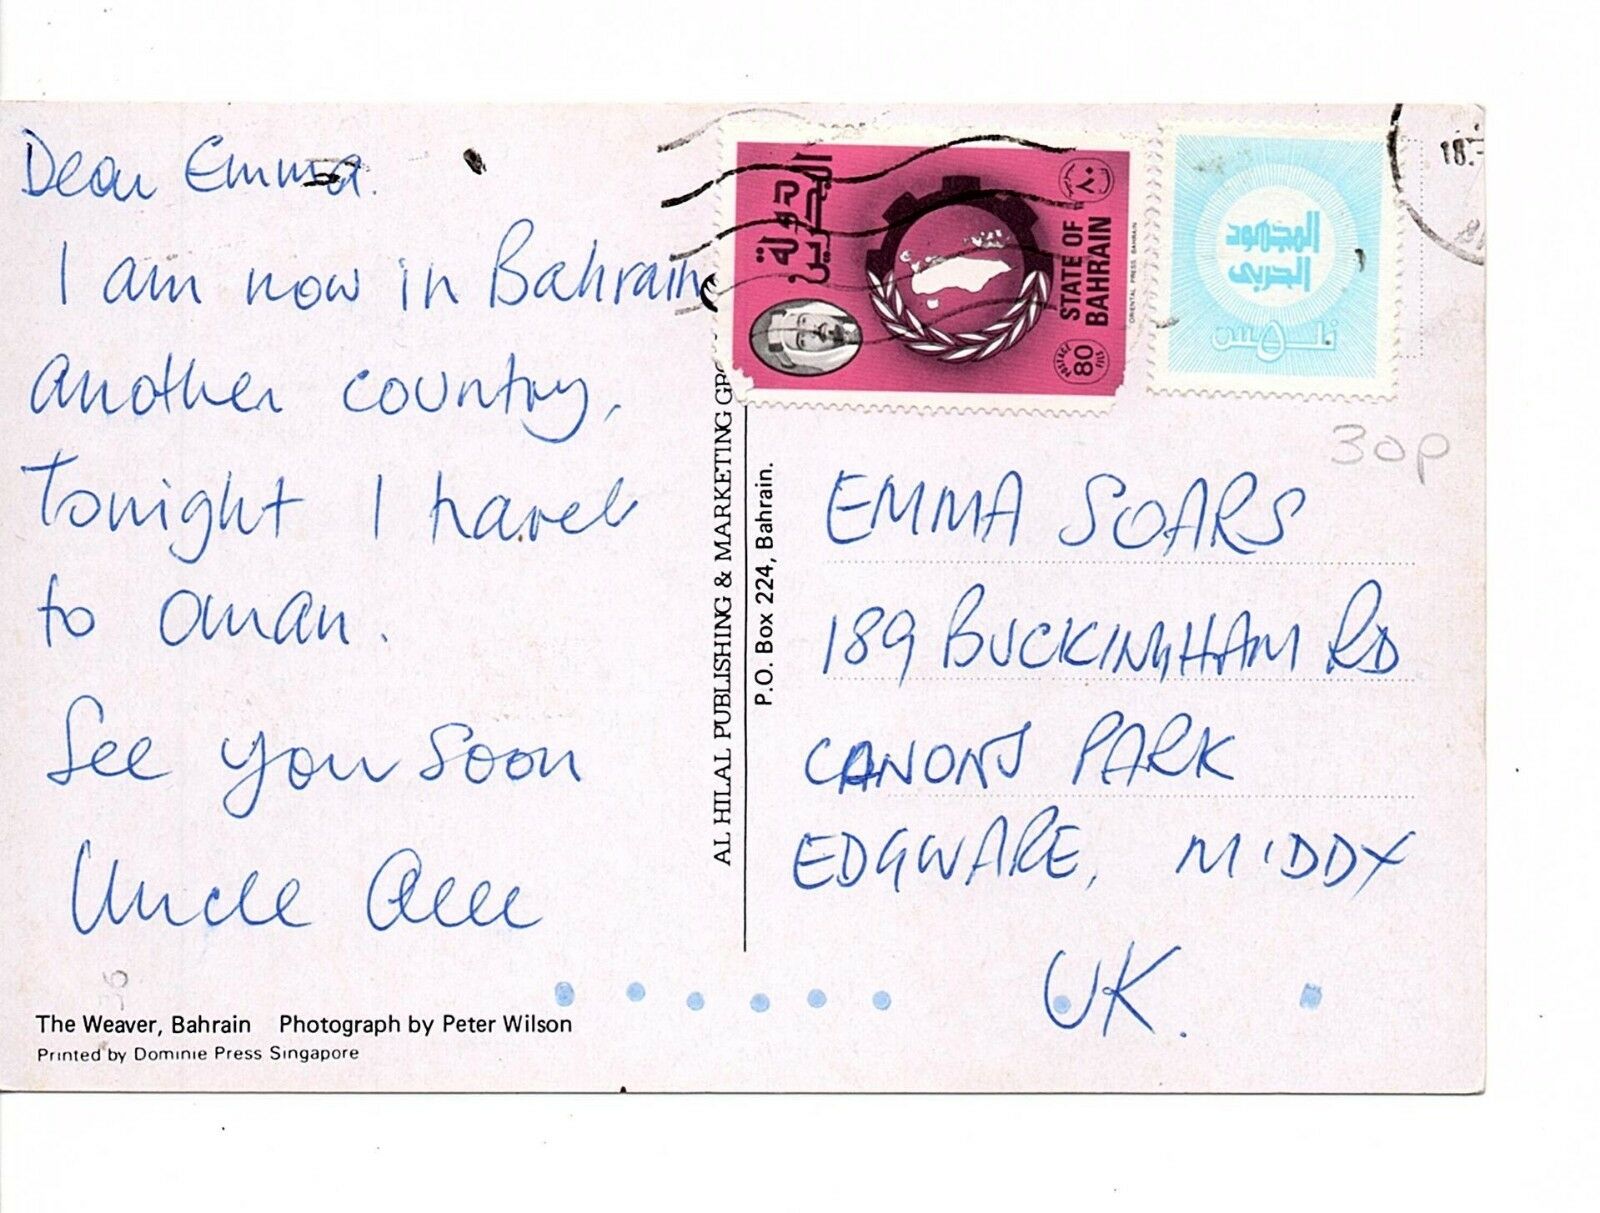 Dear Emma.
I am now in Bahrain
another country,
Tonight I travel
to Oman.
See you soon
Uncle
The Weaver, Bahrain Photograph by Peter Wilson
Printed by Dominie Press Singapore
AL HILAL PUBLISHING & MARKETING
P.O. Box 224, Bahrain.
دولة
البحرين
٨٠
STATE OF
BAHRAIN
POSTAGE
80
FILS
ORIENTAL PRESS BAHRAIN
المجهود
الحربي
٥ فلس
18.
30p
EMMA SOARS
189 BUCKINGHAM RD
CANONS PARK
EDGWARE, MIDDX
UK.